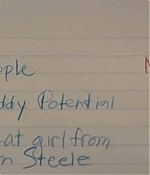 ople
ddy Potential
hat girl from
n Steele